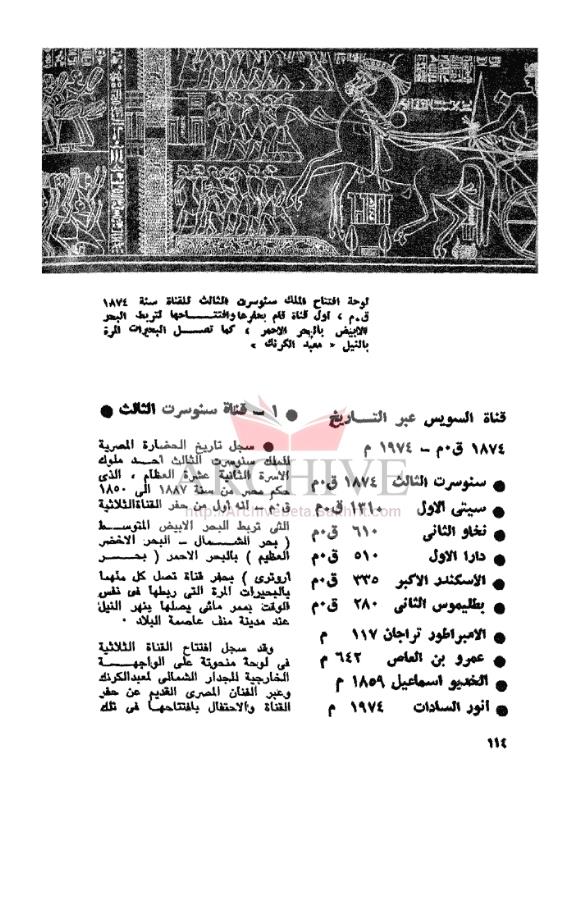 لوحة افتتاح الملك سنوسرت الثالث للقناة سنة ١٨٧٤
ق٠م ، اول قناة قام بحفرها وافتتـــاحها لتربط البحر
الابيض بالبحر الاحمر ، كما تصـــل البحيرات المرة
بالنيل « معبد الكرنك »
قناة السويس عبر التـــاريخ
١٨٧٤ ق٠م – ١٩٧٤ م
● سنوسرت الثالث ١٨٧٤ ق٠م
● سيتى الاول ١٣١٠ ق٠م
● نخاو الثانى ٦١٠ ق٠م
● دارا الاول ٥١٠ ق٠م
● الاسكندر الاكبر ٣٣٥ ق٠م
● بطليموس الثانى ٢٨٠ ق٠م
● الامبراطور تراجان ١١٧ م
● عمرو بن العاص ٦٤٢ م
● الخديو اسماعيل ١٨٥٩ م
● انور السادات ١٩٧٤ م
● ١ – قناة سنوسرت الثالث ●
● سجل تاريخ الحضارة المصرية
للملك سنوسرت الثالث أحـد ملوك
الأسرة الثانية عشرة العظام ، الذى
حكم مصر من سنة ١٨٨٧ الى ١٨٥٠
ق٠م – أنه أول من حفر القناة الثلاثية
التى تربط البحر الابيض المتوسـط
( بحر الشـــمال – البحر الاخضر
العظيم ) بالبحر الاحمر ( بحـــر
أروترى ) بحفر قناة تصل كل منهما
بالبحيرات المرة التى ربطها فى نفس
الوقت بممر مائى يصلها بنهر النيل
عند مدينة منف عاصمة البلاد ٠
وقد سجل افتتاح القناة الثلاثية
فى لوحة منحوتة على الواجهـــة
الخارجية للجدار الشمالى لمعبد الكرنك
وعبر الفنان المصرى القديم عن حفر
القناة والاحتفال بافتتاحهـا فى تلك
١١٤
ARCHIVE
http://Archivebeta.Sakhrit.com